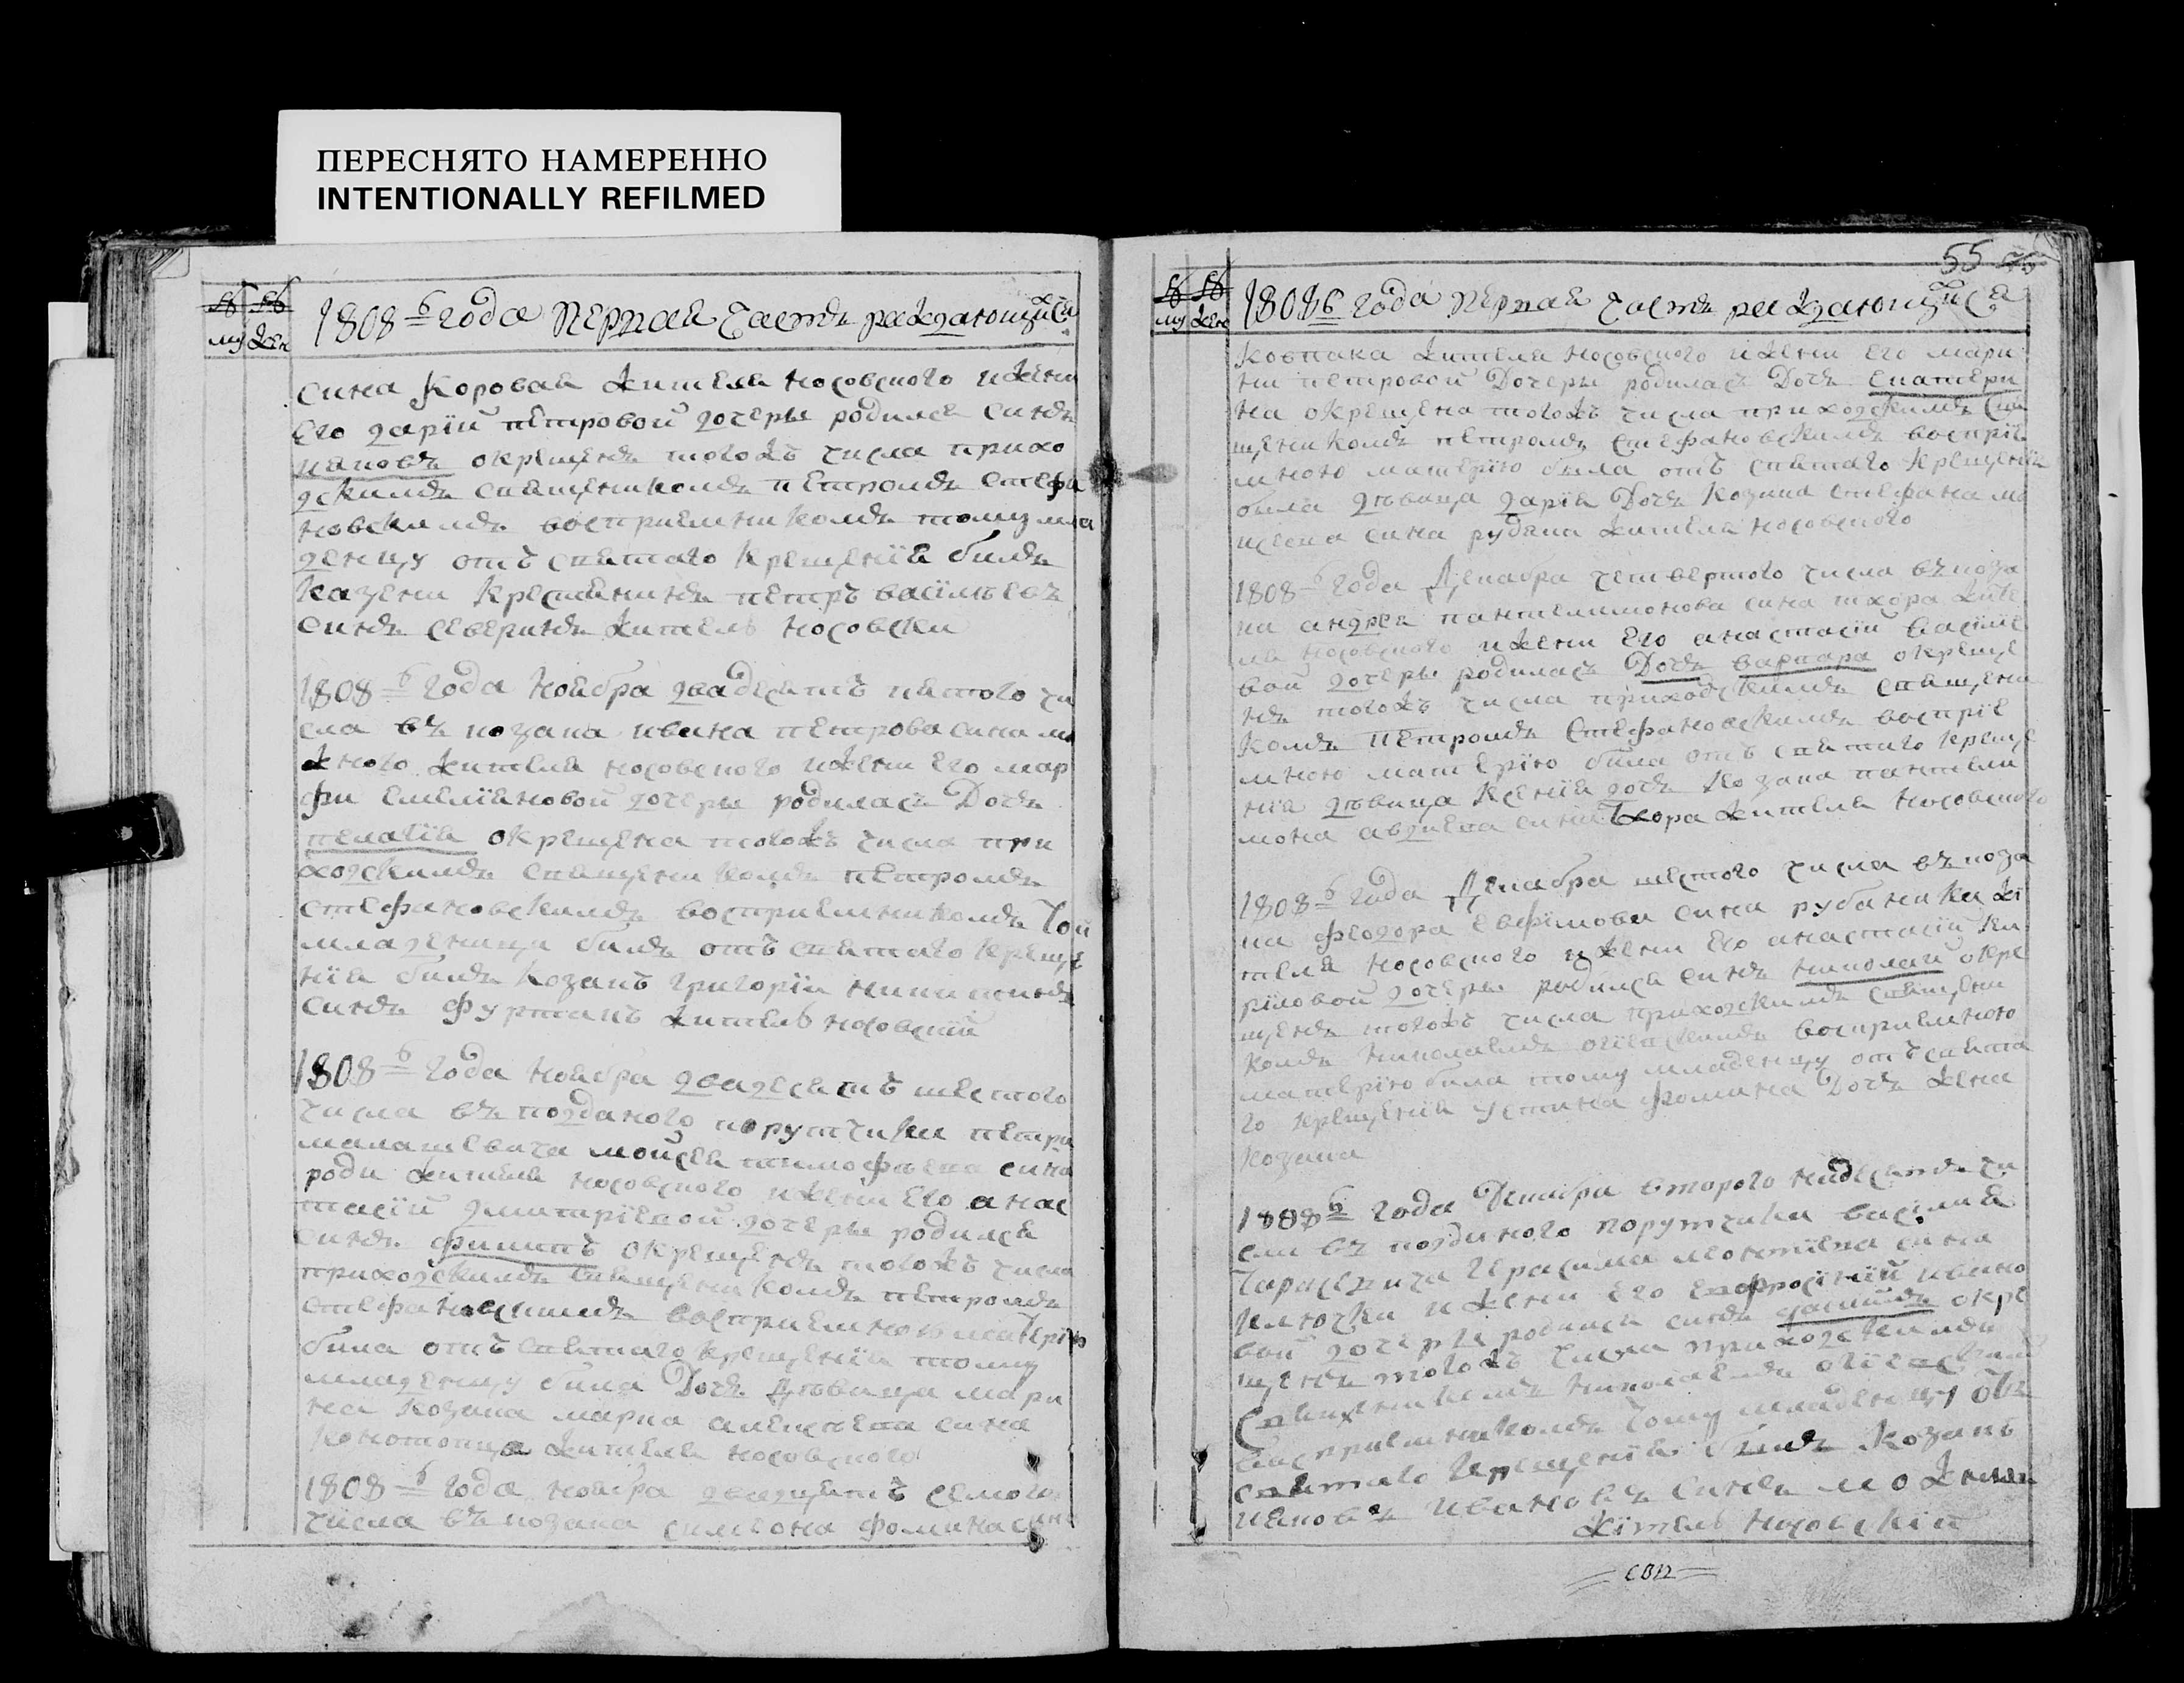 ПЕРЕСНЯТО НАМЕРЕННО
INTENTIONALLY REFILMED
му жен
1808 го года первая часть раждающихся
сина Коровая жителя носовского и жени
Его дарїи петровой дочеры родился синъ
іяковъ окрещенъ тогожъ числа прихо
дскимъ священикомъ петромъ стефа
новскимъ восприемникомъ тому мла
денцу отъ святаго крещенїя билъ
казени крестянинъ петръ васїлъевъ
синъ северинъ жителъ носовски
1808 го года ноября двадесятъ пятого чи
сла въ козака ивана петрова сина мо
жного жителя носовского и жени его мар
фи емелїяновой дочеры родиласъ Дочъ
пелагїя окрещена тогожъ числа при
ходскимъ священикомъ петромъ
стефановскимъ восприемникомъ той
младеници билъ отъ святаго креще
нїя билъ козакъ григорїи никитинъ
синъ фурманъ жителъ носовскїй
1808 го года ноября двадесятъ шестого
числа въ подданого порутчика петра
малашевича мойсея тимофѣева сина
роди жителя носовского и жени его анас
тасїи дмитрїевой дочеры родился
синъ филипъ окрещенъ тогожъ числа
приходскимъ священикомъ петромъ
стефановскимъ восприемною матерїю
била отъ святаго крещенїя тому
младенцу била Дочъ дѣвица мари
на козака марка алексѣева сина
конотопца жителя носовского
1808 го года ноября двадцятъ семого
числа въ козака симеона фомина сина
55
му жен
1808 го года первая часть раждающихся
ковпака жителя носовского и жени его мари
ни петровой Дочеры родиласъ Дочъ екатери
на окрещена тогожъ числа приходскимъ свя
щеникомъ петромъ стефановскимъ воспрїе
мною матерїю била отъ святаго крещенїя
била дѣвица дарїя Дочъ козака стефана мо
исеева сина рудяка жителя носовского
1808 го года Декабра четвертого числа въ коза
ка андрея пантелимонова сина тхора жите
ля носовского и жени его анастасїи васїлїе
вой дочеры родиласъ Дочъ варвара окреще
нъ тогожъ числа приходскимъ священи
комъ петромъ стефановскимъ воспрїе
мною матерїю била отъ святаго креще
нїя дѣвица ксенїя дочъ козака пантели
мона авдиева сина Тхора жителя носовского
1808 го года Декабра шестого числа въ коза
ка феодора евфімова сина рубаника жі
теля носовского и жени его анастасїи ки
рїловой дочеры родился синъ николай окре
щенъ тогожъ числа приходскимъ священи
комъ николаемъ огїевскимъ восприемною
матерїю била тому младенцу отъ свята
го крещенїя устина фомина Дочъ жена
козака
1808 го года Декабра второго надесятъ чи
сла въ подданого порутчика васїлия
Тарасевича герасима леонтїева сина
илючки и жени его евфросінїи ивано
вой дочеры родился синъ данїилъ окре
щенъ тогожъ числа приходскимъ
священикомъ николаемъ огїевским
восприемникомъ тому младенцу отъ
святаго крещенїя билъ козакъ
іяковъ ивановъ синъ можни
жїтелъ носовскїй